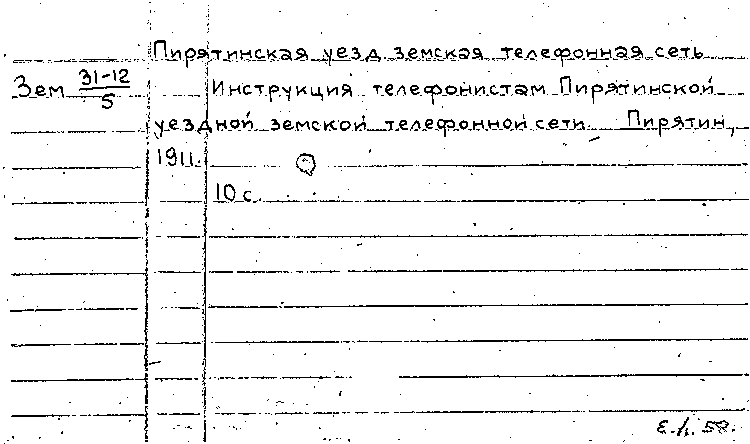 Пирятинская уезд. земская телефонная сеть
Зем 31-12/5
Инструкция телефонистам Пирятинской
уездной земской телефонной сети. Пирятин,
1911.
10 с.